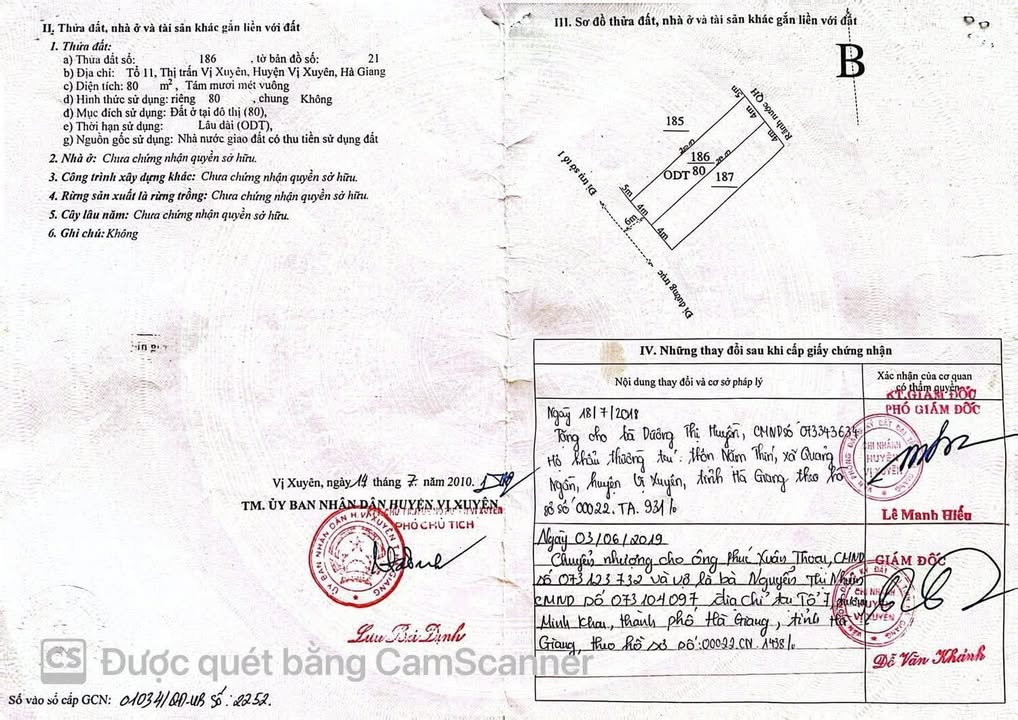 II. Thửa đất, nhà ở và tài sản khác gắn liền với đất
1. Thửa đất:
a) Thửa đất số: 186 , tờ bản đồ số: 21
b) Địa chỉ: Tổ 11, Thị trấn Vị Xuyên, Huyện Vị Xuyên, Hà Giang
c) Diện tích: 80 m², Tám mươi mét vuông
d) Hình thức sử dụng: riêng 80 , chung Không
đ) Mục đích sử dụng: Đất ở tại đô thị (80),
e) Thời hạn sử dụng: Lâu dài (ODT),
g) Nguồn gốc sử dụng: Nhà nước giao đất có thu tiền sử dụng đất
2. Nhà ở: Chưa chứng nhận quyền sở hữu.
3. Công trình xây dựng khác: Chưa chứng nhận quyền sở hữu.
4. Rừng sản xuất là rừng trồng: Chưa chứng nhận quyền sở hữu.
5. Cây lâu năm: Chưa chứng nhận quyền sở hữu.
6. Ghi chú: Không
Vị Xuyên, ngày 19 tháng 7. năm 2010.
TM. ỦY BAN NHÂN DÂN HUYỆN VỊ XUYÊN
PHÓ CHỦ TỊCH
Lưu Bá Định
Số vào sổ cấp GCN: 01034/QĐ-UB Số: 2252.
III. Sơ đồ thửa đất, nhà ở và tài sản khác gắn liền với đất
B
Rãnh nước QH
5m
4m
4m
185
20m
186
ODT 80
20m
187
Đi trụ sở tổ 1
5m
4m
6m
4m
Đi đường trục
IV. Những thay đổi sau khi cấp giấy chứng nhận
Nội dung thay đổi và cơ sở pháp lý
Xác nhận của cơ quan
có thẩm quyền
Ngày 18/7/2018
Tặng cho bà Dương Thị Huyện, CMND số 073343634
Hộ khẩu thường trú: thôn Nậm Thín, xã Quang
Ngần, huyện Vị Xuyên, tỉnh Hà Giang theo hồ
sơ số 00022.TA.931/.
KT.GIÁM ĐỐC
PHÓ GIÁM ĐỐC
CHI NHÁNH
HUYỆN
VỊ XUYÊN
Lê Mạnh Hiếu
Ngày 03/06/2019
Chuyển nhượng cho ông Phúc Xuân Thoại, CMND
số 073123732 và vợ là bà Nguyễn Thị
CMND số 073104097 địa chỉ tại Tổ 7, phường
Minh Khai, thành phố Hà Giang, tỉnh Hà
Giang, theo hồ sơ số: 00022.CN.1438/.
GIÁM ĐỐC
CHI NHÁNH
HUYỆN
VỊ XUYÊN
Đỗ Văn Khánh
CS Được quét bằng CamScanner